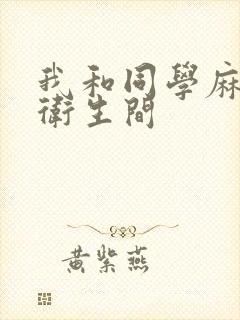 我和同學麻
衛生間
黃紫燕